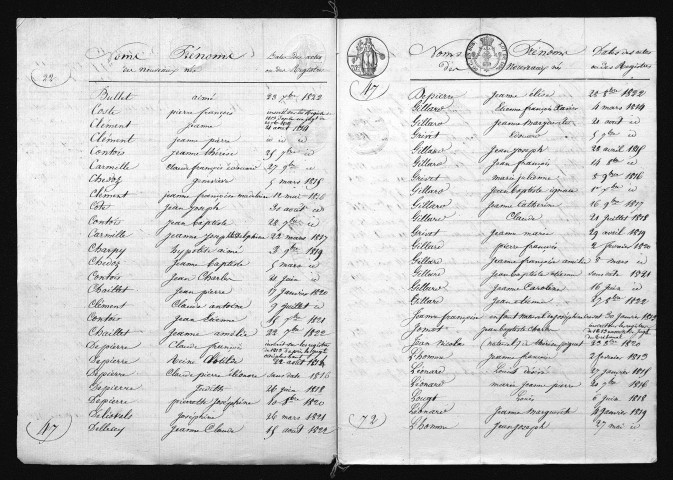 22
Noms des nouveaux nés Prénoms Dates des actes ou des Registres
Bullet aimé 23 9bre 1822
Coste pierre françois
Clément jeanne 4 aout 1814
Clément jeanne pierre id id
Contois jeanne thérèse 25 id
Carmille claude françois 27 9bre id
Chevoz geneviève 5 mars 1815
Clément jeanne françoise 12 mai 1816
Côte jean joseph 30 août id
Contois jean baptiste 28 9bre id
Carmille jeanne joseph delphine 22 mars 1817
Charpy hypolite aimé 3 9bre 1819
Chevoz jeanne baptiste 5 mars id
Contois jean Charles 21 juin id
Chaillet jean pierre 17 janvier 1820
Clément Claude antoine 9 juillet id
Contois jean Etienne 1821
Chaillet jeanne amélie 22 1822
Depierre Claude françois
Depierre Reine 22 août 1814
Depierre Claude pierre Eléonore sans date 1816
Depierre Judith 26 juin 1818
Depierre pierrette Joséphine 10 8bre 1820
Joséphine 26 mars 1821
Jeanne Claude 15 août 1822
47
47
Noms des nouveaux nés Prénoms Dates des actes ou des Registres
Depierre jeanne élise 28 8bre 1822
Gillard Etienne françois Xavier 4 mars 1814
Gillard jeanne marguerite 20 août id
Grivet Léonard 5 id
Gillard jean joseph 28 avril 1815
Gillard jean françois 14 8bre id
Grivet marie julienne 5 9bre 1816
Gillard jean baptiste ignace 1er id
Gillard jeanne Catherine 16 9bre 1817
Gillard Claude 21 juillet 1818
Grivet jeanne marie 29 avril 1819
Gillard pierre françois 2 février 1820
Gillard jeanne françoise 8 mars id
Gillard jean baptiste étienne sans date 1821
Gillard jeanne Caroline 16 juin id
Gillard jean étienne 27 8bre 1822
Jeanne françoise enfant naturel 30 janvier
Jean baptiste Charles
Jean Nicolas naturel de 23 8bre 1820
Lhomme jeanne françoise 2 février 1813
Léonard Louis désiré 27 janvier 1815
Léonard marie jeanne pierre 20 1816
Louis 6 juin 1818
Léonard Jeanne Marguerite 4 janvier 1819
Lhomme Jean joseph 27 mai id
72